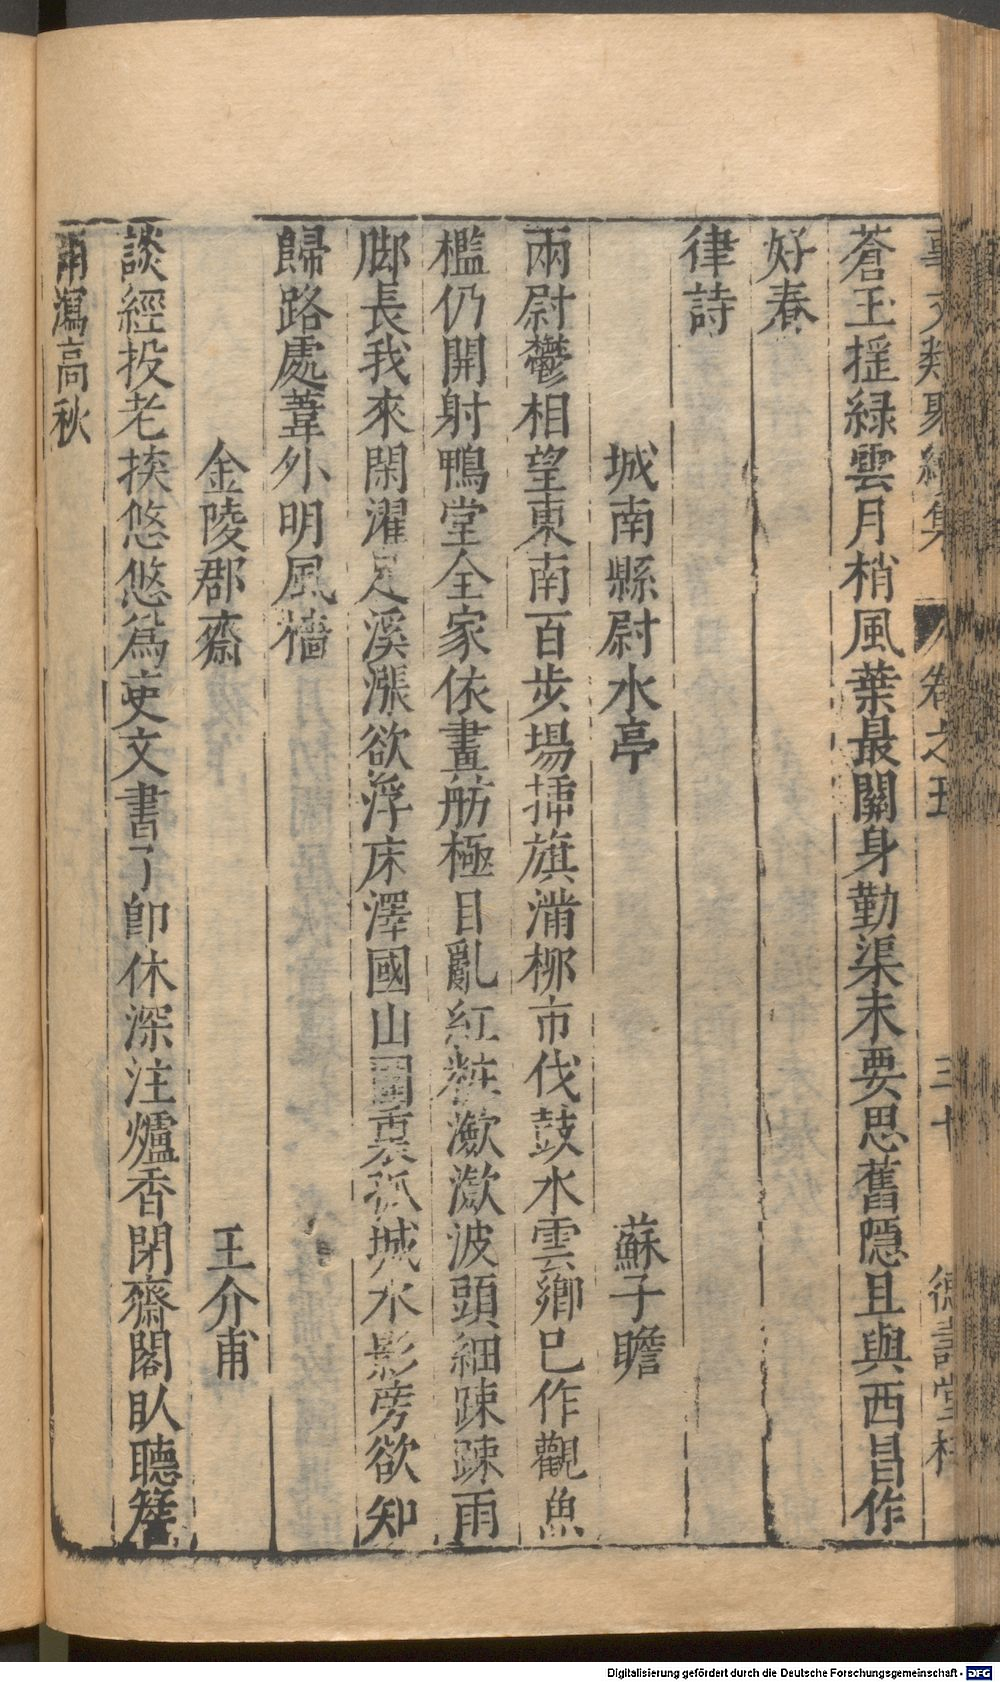 事文類聚續集 卷之五 三十 德壽堂梓
蒼玉揺緑雲月梢風葉最關身勤渠未要思舊隱且與西昌作
好春
律詩
城南縣尉水亭 蘇子瞻
兩尉鬱相望東南百步場揷旗滿栁市伐鼓水雲鄉已作觀魚
檻仍開射鴨堂全家依畫舫極目亂紅粧瀲瀲波頭細踈踈雨
脚長我來閑濯足溪漲欲浮床澤國山圍裏孤城水影旁欲知
歸路處葦外明風檣
金陵郡齋 王介甫
談經投老挾悠悠爲吏文書了卽休深注爐香閉齋閣臥聽簷
雨瀉高秋
Digitalisierung gefördert durch die Deutsche Forschungsgemeinschaft - DFG